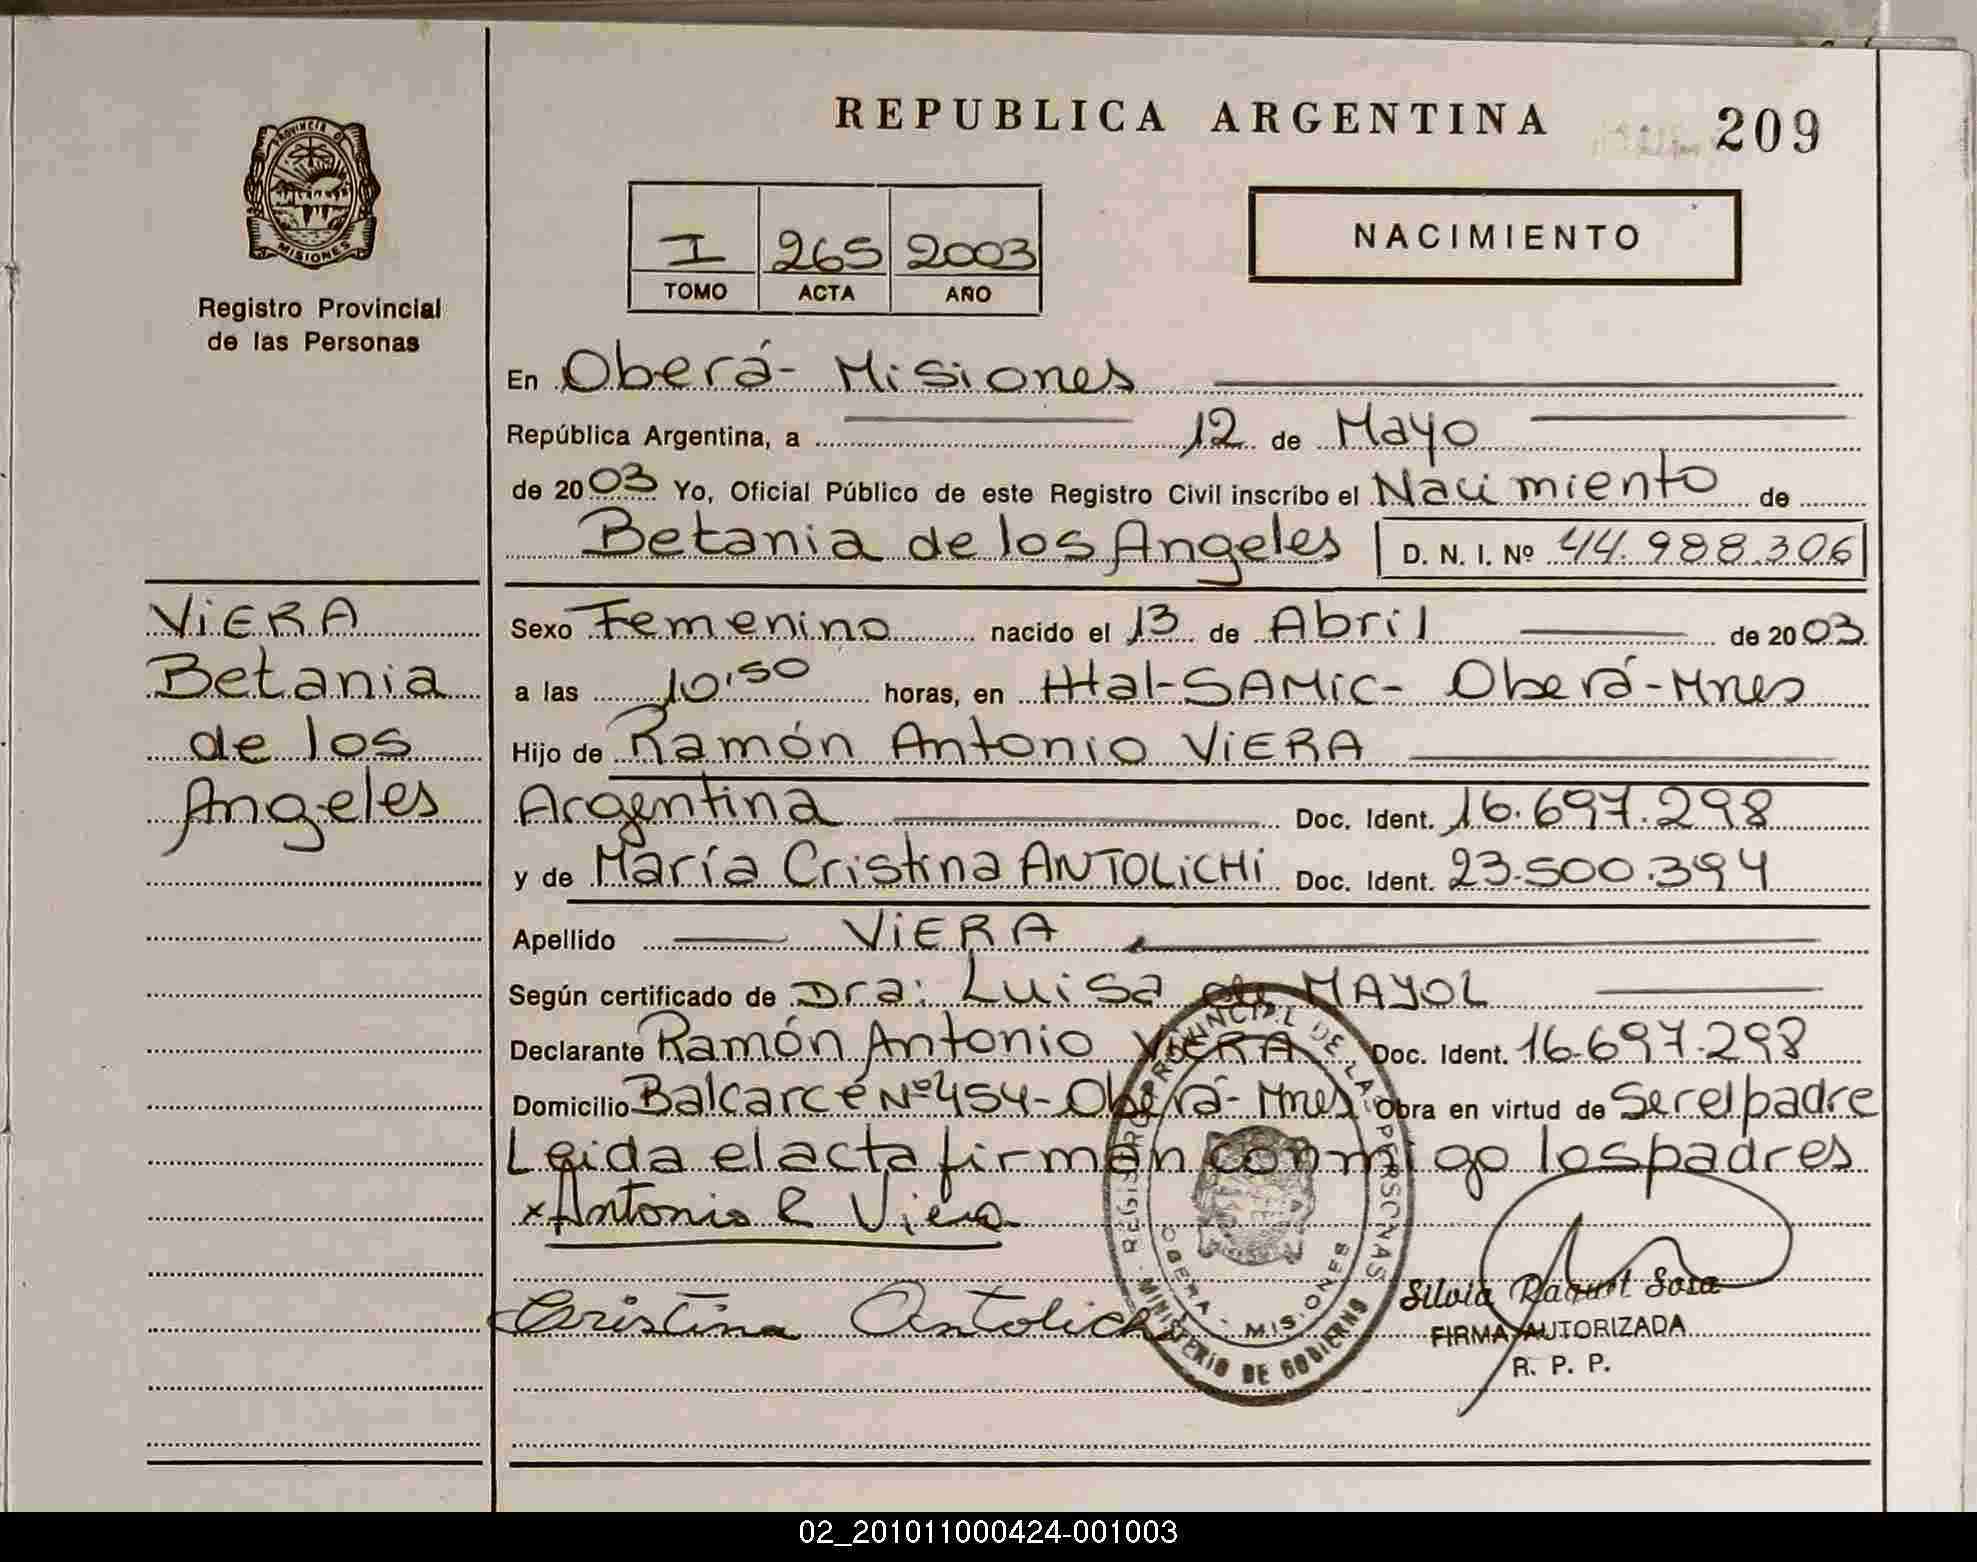 REPUBLICA ARGENTINA
209
PROVINCIA DE
MISIONES
Registro Provincial
de las Personas
I 265 2003
TOMO ACTA AÑO
NACIMIENTO
En Oberá- Misiones
República Argentina, a 12 de Mayo
de 2003 Yo, Oficial Público de este Registro Civil inscribo el Nacimiento de
Betania de los Angeles D. N. I. Nº 44.988.306
VIERA
Betania
de los
Angeles
Sexo Femenino nacido el 13 de Abril de 2003
a las 10:50 horas, en Htal-SAMIC- Oberá-Mnes
Hijo de Ramón Antonio VIERA
Argentina Doc. Ident. 16.697.298
y de María Cristina ANTOLICHI Doc. Ident. 23.500.394
Apellido VIERA
Según certificado de Dra: Luisa de MAYOL
Declarante Ramón Antonio VIERA Doc. Ident. 16.697.298
Domicilio Balcarce Nº454-Oberá-Mnes Obra en virtud de Ser el padre
Leida el acta firman conmigo los padres
x Antonio R Viera
Cristina Antolichi
REGISTRO PROVINCIAL DE LAS PERSONAS
OBERA - MISIONES
MINISTERIO DE GOBIERNO
Silvia Raquel Sosa
FIRMA AUTORIZADA
R. P. P.
02_201011000424-001003